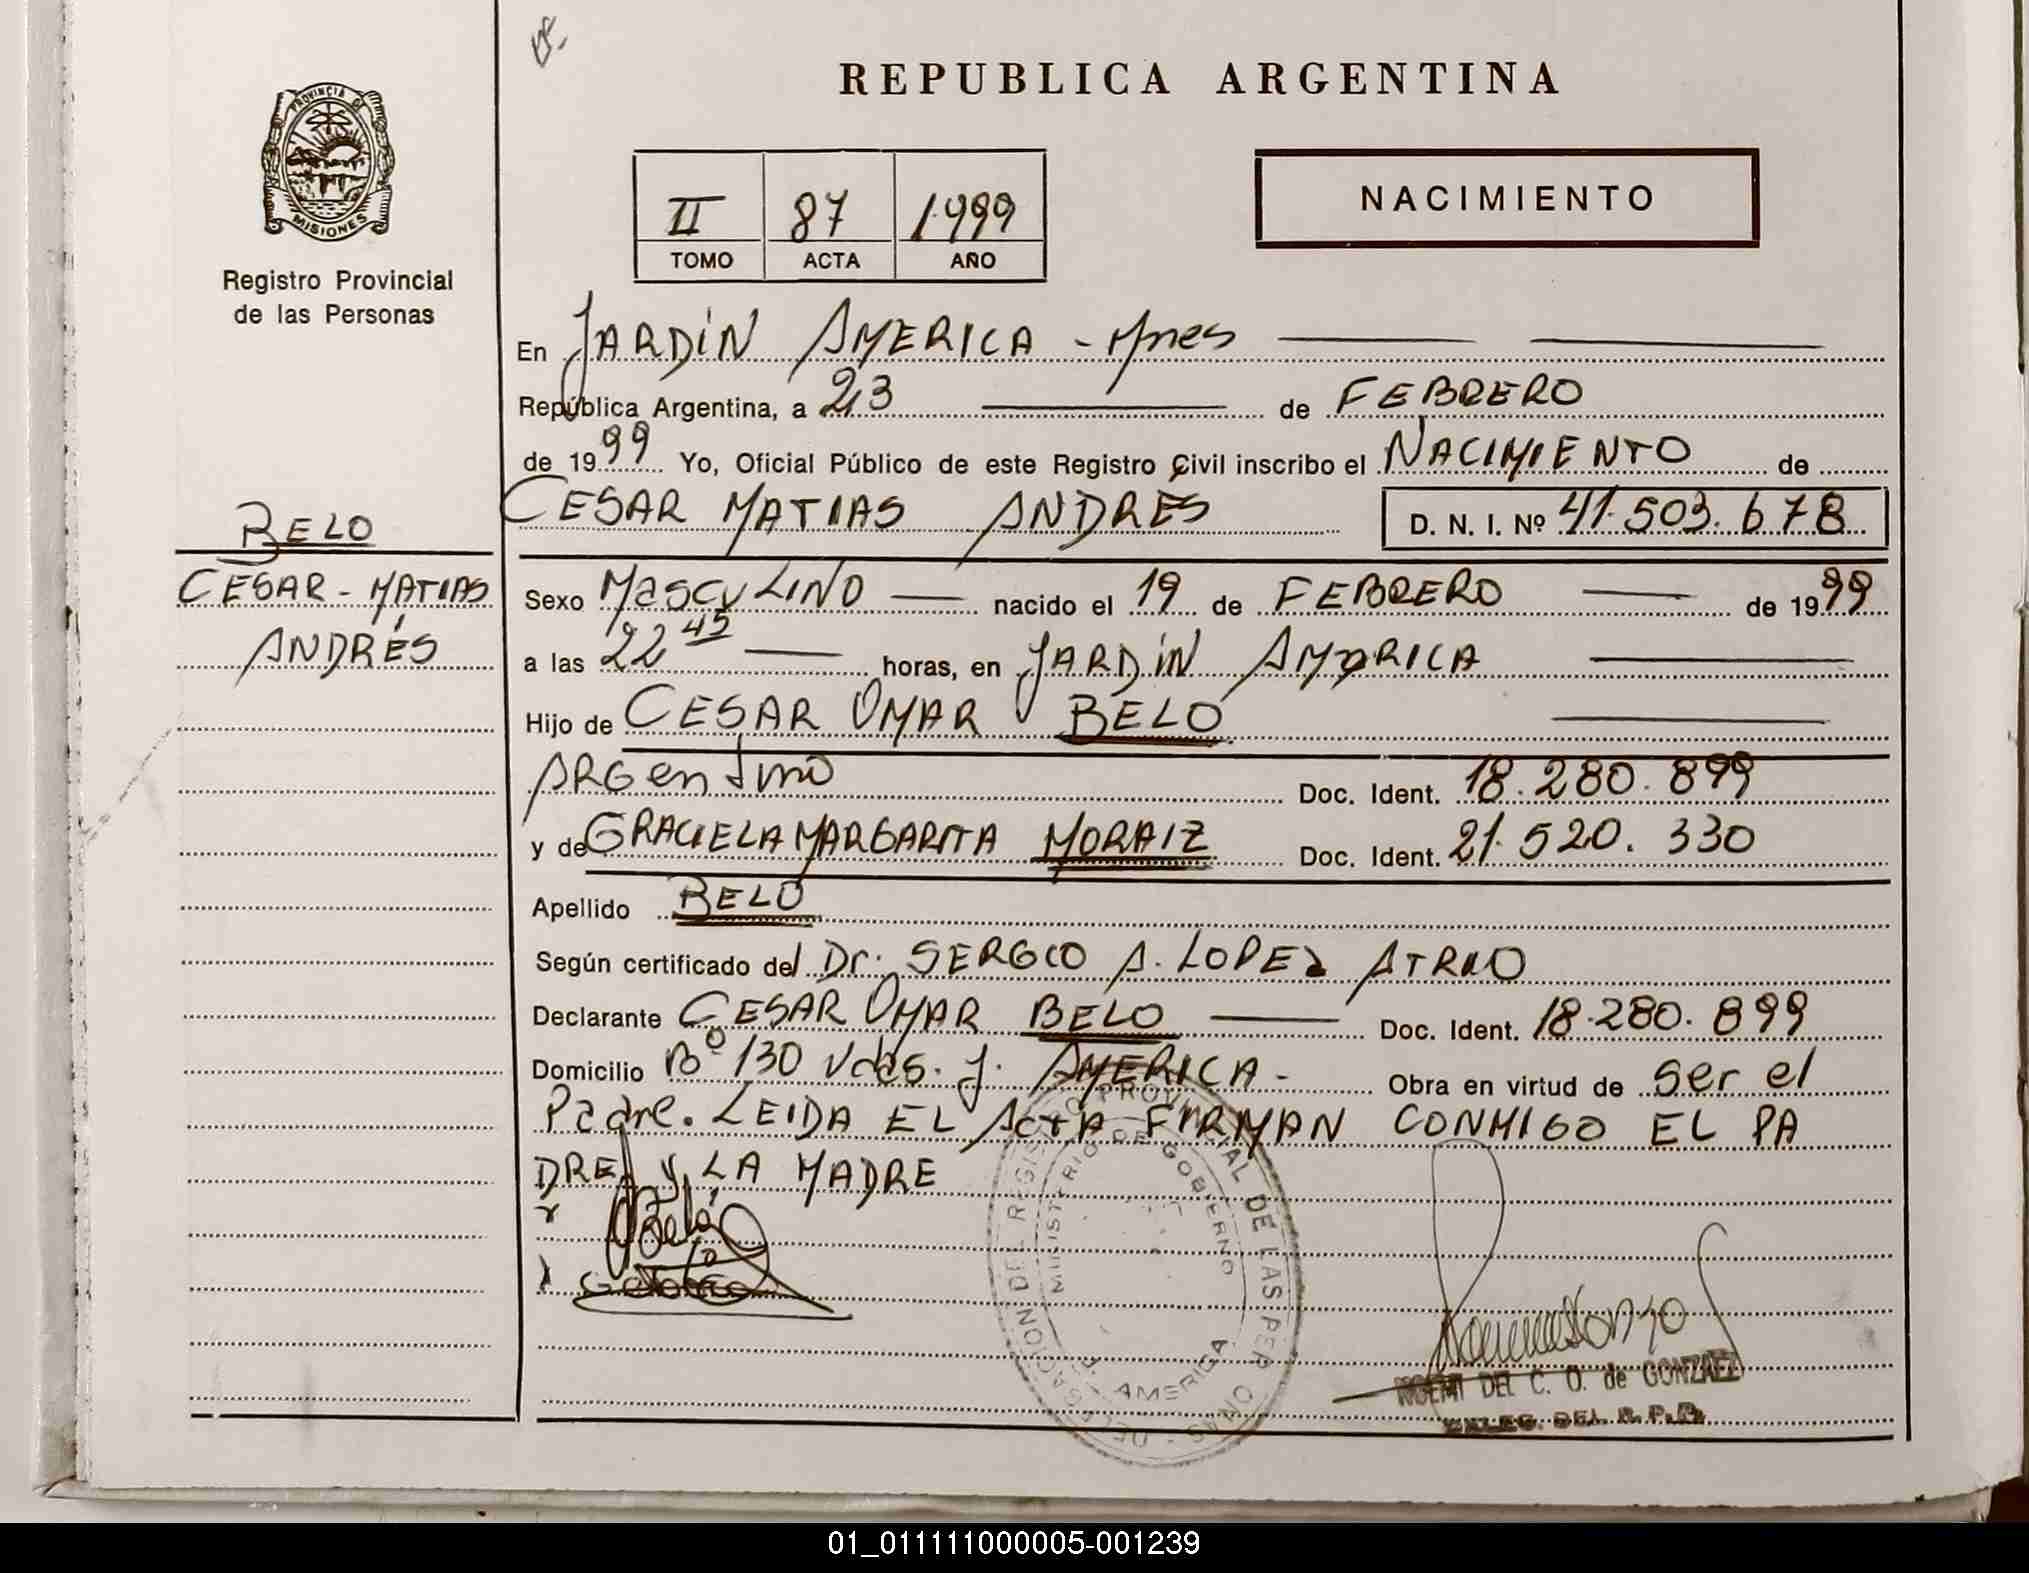 REPUBLICA ARGENTINA
PROVINCIA DE
MISIONES
Registro Provincial
de las Personas
II 87 1999
TOMO ACTA AÑO
NACIMIENTO
En JARDIN AMERICA - Mnes
República Argentina, a 23 de FEBRERO
de 1999 Yo, Oficial Público de este Registro Civil inscribo el NACIMIENTO de
CESAR MATIAS ANDRES D. N. I. Nº 41.503.678
BELO
CESAR - MATIAS
ANDRÉS
Sexo MASCULINO nacido el 19 de FEBRERO de 1999
a las 22 45 horas, en JARDIN AMERICA
Hijo de CESAR OMAR BELO
ARGentino Doc. Ident. 18.280.899
y de GRACIELA MARGARITA MORAIZ Doc. Ident. 21.520.330
Apellido BELO
Según certificado del Dr. SERGIO A. LOPEZ
Declarante CESAR OMAR BELO Doc. Ident. 18.280.899
Domicilio Bº 130 Vdas. J. AMERICA - Obra en virtud de ser el
Padre. LEIDA EL ACTA FIRMAN CONMIGO EL PA
DRE y LA MADRE
DELEGACION DEL REGISTRO PROVINCIAL DE LAS PERSONAS
MINISTERIO DE GOBIERNO
J. AMERICA
NOEMI DEL C. O. de GONZALEZ
DELEG. DEL R. P. P.
01_011111000005-001239